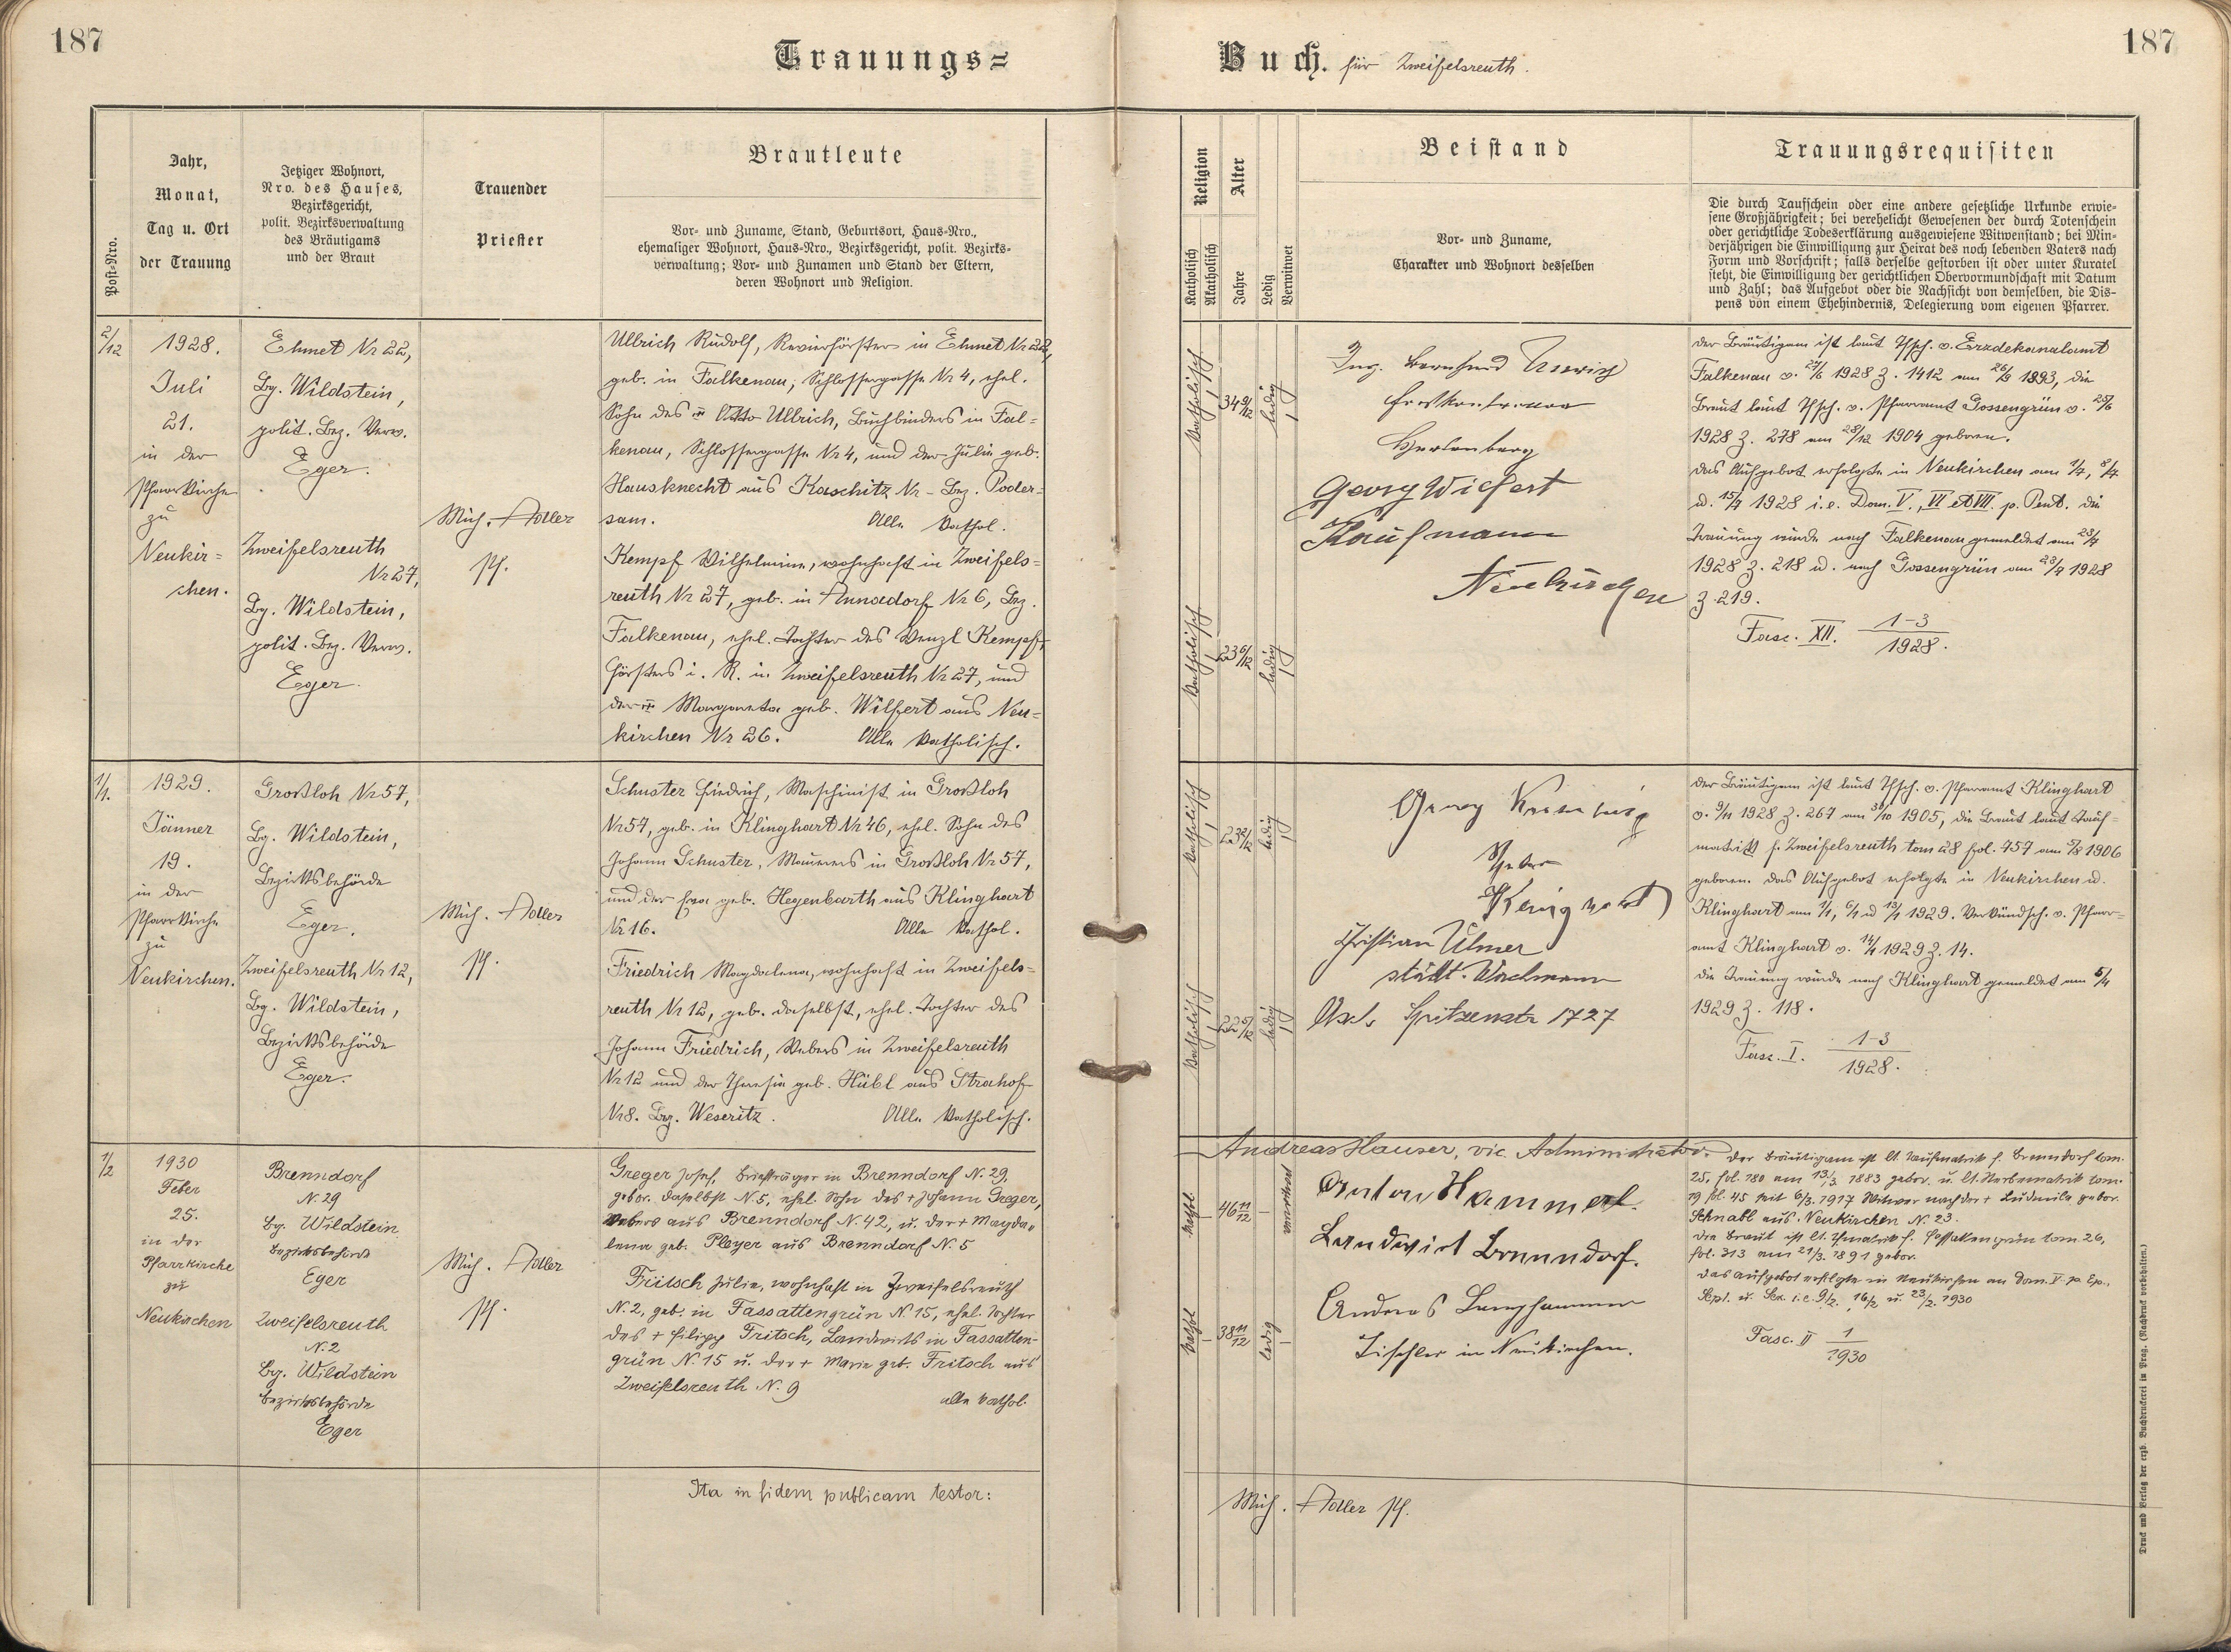 187
187
Trauungs=
Buch. für Zweifelsreuth.
Post-Nro.
Jahr,
Monat,
Tag u. Ort
der Trauung
Jetziger Wohnort,
Nro. des Hauses,
Bezirksgericht,
polit. Bezirksverwaltung
des Bräutigams
und der Braut
Trauender
Priester
Brautleute
Vor- und Zuname, Stand, Geburtsort, Haus-Nro.,
ehemaliger Wohnort, Haus-Nro., Bezirksgericht, polit. Bezirks-
verwaltung; Vor- und Zunamen und Stand der Eltern,
deren Wohnort und Religion.
Religion
Katholisch
Akatholisch
Alter
Jahre
Ledig
Verwitwet
Beistand
Vor- und Zuname,
Charakter und Wohnort desselben
Trauungsrequisiten
Die durch Taufschein oder eine andere gesetzliche Urkunde erwie-
sene Großjährigkeit; bei verehelicht Gewesenen der durch Totenschein
oder gerichtliche Todeserklärung ausgewiesene Witwenstand; bei Min-
derjährigen die Einwilligung zur Heirat des noch lebenden Vaters nach
Form und Vorschrift; falls derselbe gestorben ist oder unter Kuratel
steht, die Einwilligung der gerichtlichen Obervormundschaft mit Datum
und Zahl; das Aufgebot oder die Nachsicht von demselben, die Dis-
pens von einem Ehehindernis, Delegierung vom eigenen Pfarrer.
2/12
1928.
Juli
21.
in der
Pfarrkirche
zu
Neukir=
chen.
Ehmet Nr 22,
Bg. Wildstein,
polit. Bez. Verw.
Eger.
Zweifelsreuth
Nr 27,
Bg. Wildstein,
polit. Bez. Verw.
Eger.
Mich. Adler
Pf.
Ullrich Rudolf, Revierförster in Ehmet Nr 22,
geb. in Falkenau, Schlossergasse Nr 4, ehel.
Sohn des Otto Ullrich, Buchbinders in Fal=
kenau, Schlossergasse Nr 4, und der Julie geb.
Hausknecht aus Kaschitz Nr – Bez. Poder=
sam. Alle kathol.
Kempf Wilhelmine, wohnhaft in Zweifels=
reuth Nr 27, geb. in Annadorf Nr 6, Bez.
Falkenau, ehel. Tochter des Wenzl Kempf,
Försters i. R. in Zweifelsreuth Nr 27, und
der Margareta geb. Wilfert aus Neu=
kirchen Nr 26. Alle katholisch.
katholisch
34 9/12
ledig
katholisch
23 6/12
ledig
Ing. Bernhard
Forstkontrollor
Hartenberg
Georg Wilfert
Kaufmann
Neukirchen
Der Bräutigam ist laut Tfsch. v. Erzdekanalamt
Falkenau v. 27/6 1928 Z. 1412 am 26/9 1893, die
Braut laut Tfsch. v. Pfarramt Gossengrün v. 25/6
1928 Z. 278 am 28/12 1904 geboren.
Das Aufgebot erfolgte in Neukirchen am 1/7, 8/7
u. 15/7 1928 i.e. Dom. V., VI et VII. p. Pent. Die
Trauung wurde nach Falkenau gemeldet am 23/7
1928 Z. 218 u. nach Gossengrün am 23/7 1928
Z. 219.
Fasc. XII. 1-3/1928.
1/1.
1929.
Jänner
19.
in der
Pfarrkirche
zu
Neukirchen.
Großloh Nr 57,
Bg. Wildstein,
Bezirksbehörde
Eger.
Zweifelsreuth Nr 12,
Bg. Wildstein,
Bezirksbehörde
Eger.
Mich. Adler
Pf.
Schuster Friedrich, Maschinist in Großloh
Nr 57, geb. in Klinghart Nr 46, ehel. Sohn des
Johann Schuster, Maurers in Großloh Nr 57,
und der Eva geb. Hegenbarth aus Klinghart
Nr 16. Alle kathol.
Friedrich Magdalena, wohnhaft in Zweifels=
reuth Nr 12, geb. daselbst, ehel. Tochter des
Johann Friedrich, Webers in Zweifelsreuth
Nr 12 und der Theresia geb. Hübl aus Strahof
Nr 8. Bg. Weseritz. Alle katholisch.
katholisch
23 2/12
ledig
katholisch
22 5/12
ledig
Georg
Christian Ulmer
städt. Wachmann
Asch Spitzenstr 1727
Der Bräutigam ist laut Tfsch. v. Pfarramt Klinghart
v. 9/11 1928 Z. 267 am 30/10 1905, die Braut laut Tauf=
matrik f. Zweifelsreuth tom 28 fol. 457 am 5/8 1906
geboren. Das Aufgebot erfolgte in Neukirchen u.
Klinghart am 1/1, 6/1 u 13/1 1929. Verkündsch. v. Pfarr=
amt Klinghart v. 14/1 1929 Z. 14.
Die Trauung wurde nach Klinghart gemeldet am 5/4
1929 Z. 118.
Fasc. I. 1-3/1928.
1/2
1930
Feber
25.
in der
Pfarrkirche
zu
Neukirchen
Brenndorf
N. 29
Bg. Wildstein
Bezirksbehörde
Eger
Zweifelsreuth
N. 2
Bg. Wildstein
Bezirksbehörde
Eger
Mich. Adler
Pf.
Greger Josef, Briefträger in Brenndorf N. 29,
gebor. daselbst N. 5, ehel. Sohn des + Johann Greger,
Webers aus Brenndorf N. 42, u. der + Magda=
lena geb. Pleyer aus Brenndorf N. 5
Fritsch Julie, wohnhaft in Zweifelsreuth
N. 2, geb. in Fassattengrün N. 15, ehel. Tochter
des + Filipp Fritsch, Landwirts in Fassatten-
grün N. 15 u. der + Marie geb. Fritsch aus
Zweifelsreuth N. 9 alle kathol.
kathol
46 11/12
verwitwet
kathol
38 11/12
ledig
Andreas Hauser, vic. Administrator.
Anton Hammerl.
Landwirt Brenndorf.
Andreas Langhammer
Tischler in Neukirchen.
Der Bräutigam ist lt. Taufmatrik f. Brenndorf tom.
25, fol. 180 am 13/3 1883 gebor. u. lt. Sterbematrik tom.
19 fol. 45 seit 6/3. 1917 Witwer nach der + Ludmila gebor.
Schnabl aus Neukirchen N. 23.
Die Braut ist lt. Tfmatrik f. Fassattengrün tom. 26,
fol. 313 am 21/3. 1891 gebor.
Das Aufgebot erfolgte in Neukirchen an Dom. V. p. Ep.,
Sept. u. Sex. i.e. 9/2. 16/2 u. 23/2. 1930
Fasc. II 1/1930
Ita in fidem publicam testor:
Mich. Adler Pf.
Druck und Verlag der erzb. Buchdruckerei in Prag. (Nachdruck vorbehalten.)